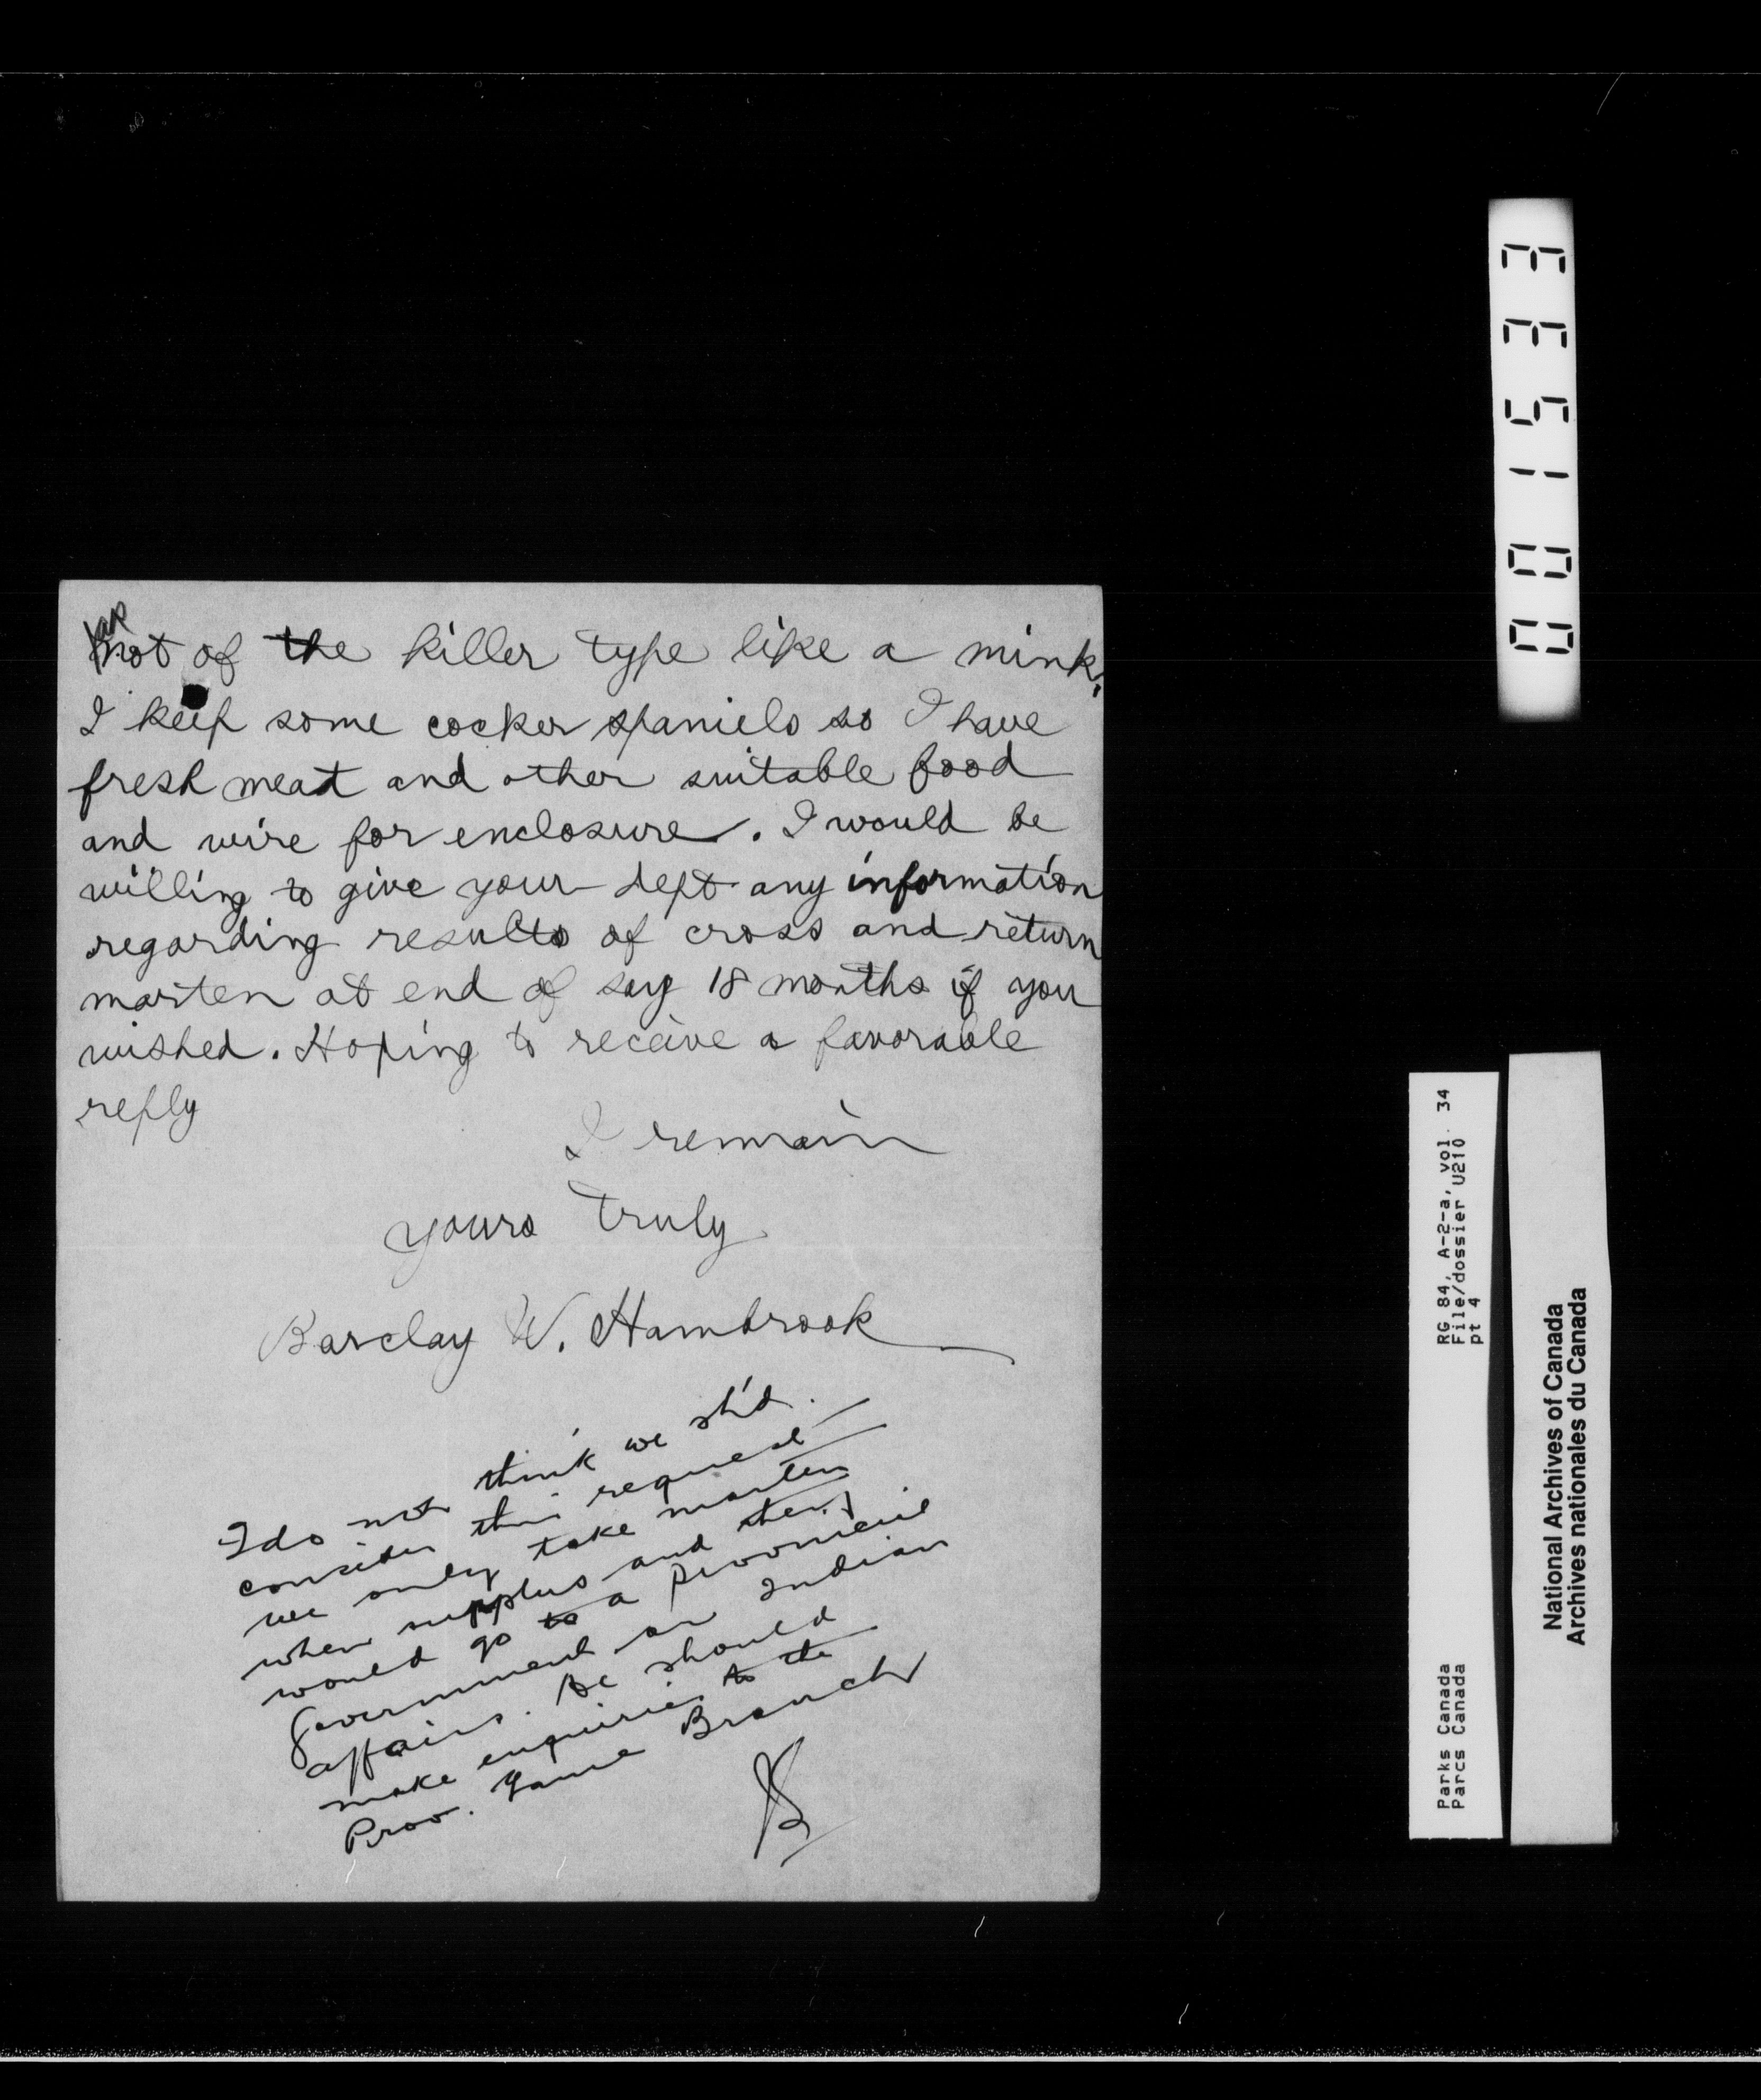 are
not of the killer type like a mink.
I keep some cocker spaniels so I have
fresh meat and other suitable food
and wire for enclosure. I would be
willing to give your dept any information
regarding results of cross and return
marten at end of say 18 months if you
wished. Hoping to receive a favorable
reply
I remain
yours truly
Barclay W. Hambrook
I do not think we sh'd.
consider this request
we only take marten
when surplus and then
would go to a provincial
Government or Indian
affairs. He should
make enquiries to the
Prov. Game Branch
001533
RG 84, A-2-a, vol. 34
File/dossier U210
pt 4
Parks Canada
Parcs Canada
National Archives of Canada
Archives nationales du Canada